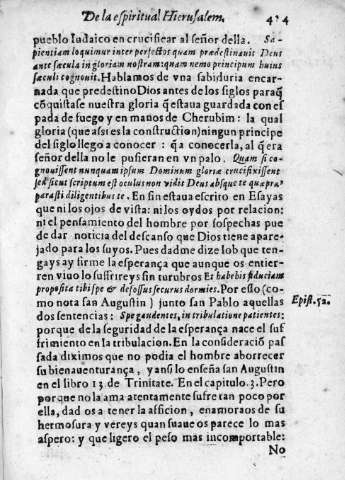 De la espiritual Hierusalem. 414
pueblo Iudaico en crucificar al señor della. Sa-
pientiam loquimur inter perfectos quam predestinauit Deus
ante sæcula in gloriam nostram: quam nemo principum huius
sæculi cognouit. Hablamos de vna sabiduria encar-
nada que predestino Dios antes de los siglos paraq̃
cõquistase nuestra gloria q̃ estaua guardada con es
pada de fuego y en manos de Cherubim: la qual
gloria (que assi es la construction) ningun principe
del siglo llego a conocer: q̃ a conocerla, al q̃ era
señor della no le pusieran en vn palo. Quam si co-
gnouissent nunquam ipsum Dominum gloriæ crucifixissent
sed sicut scriptum est oculus non vidit Deus absque te quæ præ-
parasti diligentibus te. En fin estaua escrito en Esayas
que ni los ojos de vista: ni los oydos por relacion:
ni el pensamiento del hombre por sospechas pue
de dar noticia del descanso que Dios tiene apare-
jado para los suyos. Pues dadme dize Iob que ten-
gays ay firme la esperança que aunque os entier-
ren viuo lo suffrireys sin turubros Et habebis fiduciam
proposita tibi spe & defossus securus dormies. Por esso (co-
mo nota san Augustin) junto san Pablo aquellas
dos sentencias: Spe gaudentes, in tribulatione patientes:
porque de la seguridad de la esperança nace el suf
frimiento en la tribulacion. En la consideració pas
sada diximos que no podia el hombre aborrecer
su bienauenturança, y ansi lo enseña san Augustin
en el libro 13 de Trinitate. En el capitulo. 3. Pero
porque no la ama atentamente sufre tan poco por
ella, dad os a tener la afficion, enamoraos de su
hermosura y vereys quan suaue os parece lo mas
aspero: y que ligero el peso mas incomportable:
No
Epist. 52.